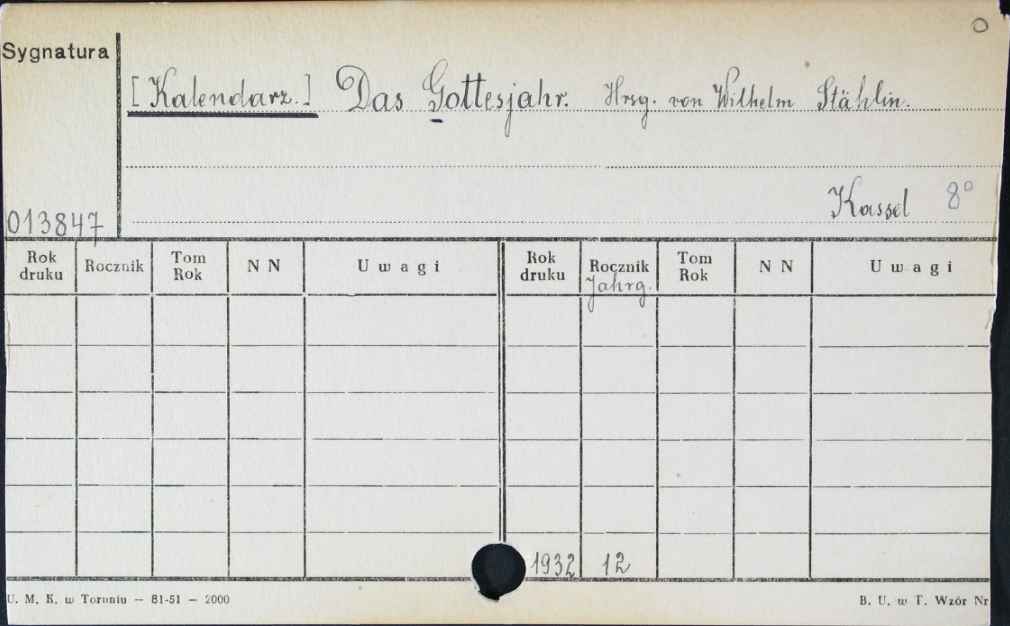 O
Sygnatura
[Kalendarz.] Das Gottesjahr. Hrsg. von Wilhelm Stählin.
Kassel 8°
013847
Rok druku Rocznik Tom Rok N N Uwagi Rok druku Rocznik Tom Rok N N Uwagi
Jahrg.
1932 12
U. M. K. w Toruniu — 81-51 — 2000 B. U. w T. Wzór Nr